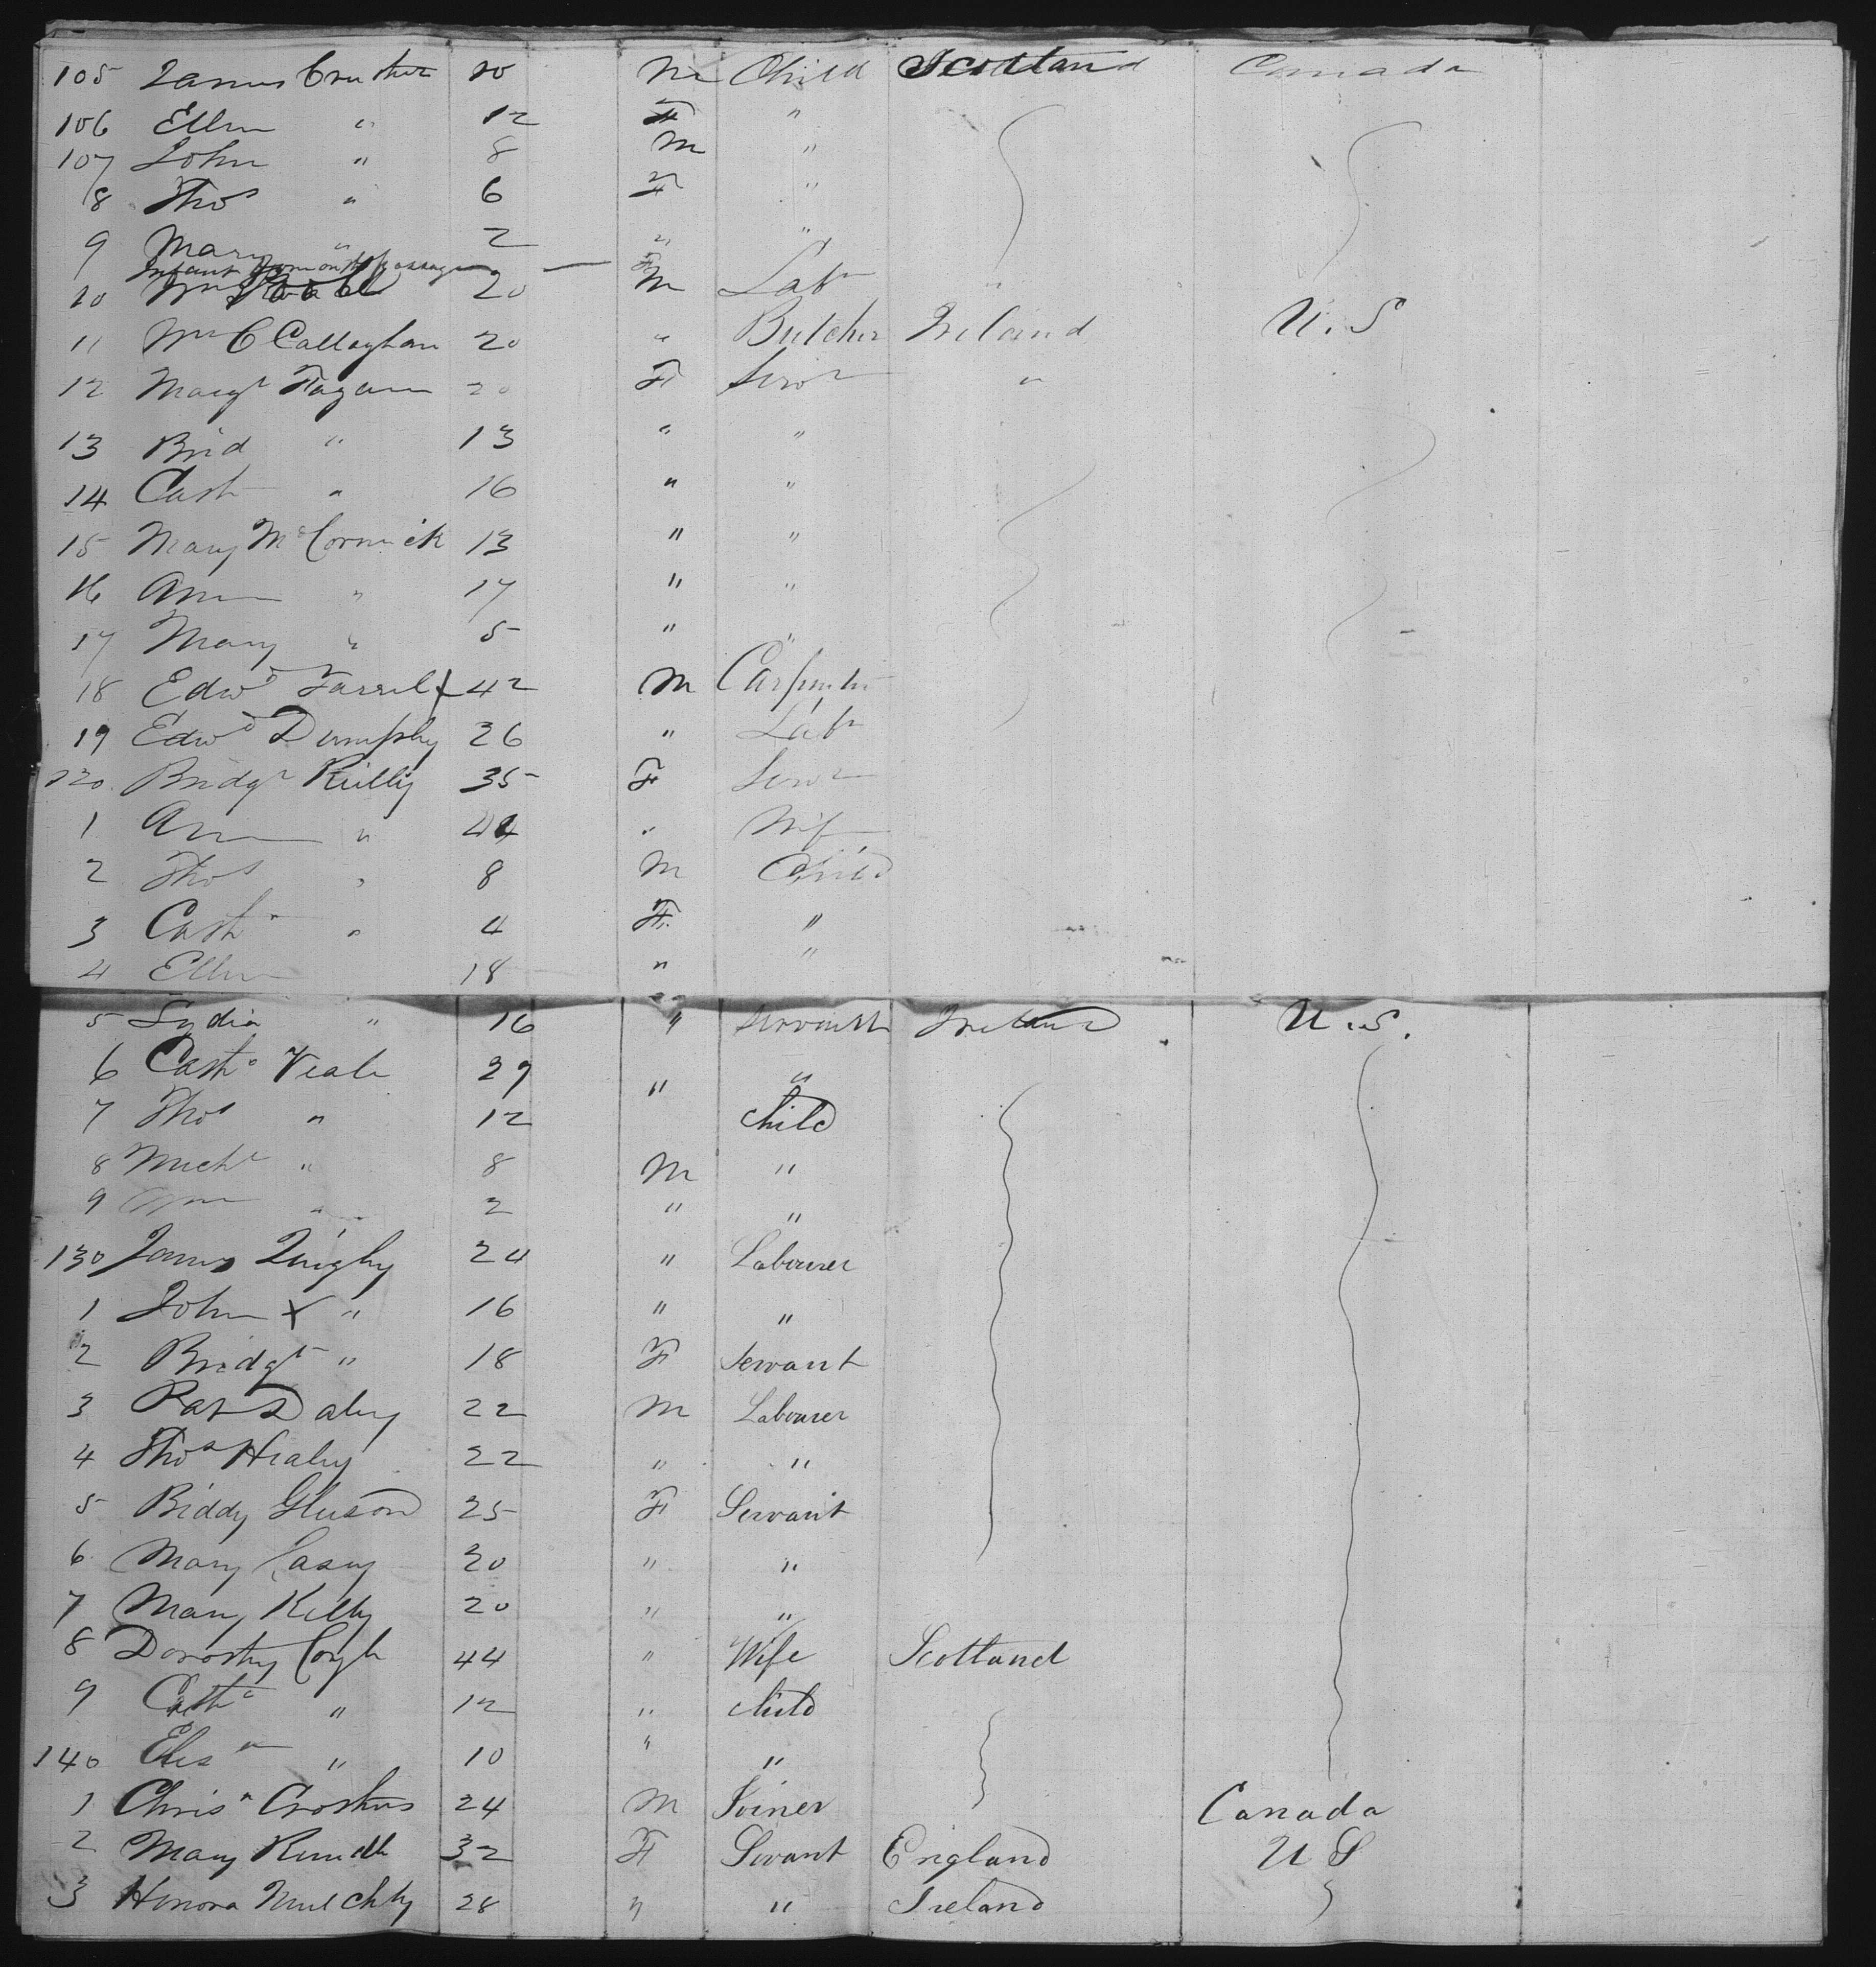 105 James 10 M Child Scotland Canada
106 Ellen " 12 F "
107 John " 8 M "
8 Thos " 6 F "
9 Mary " 2 " "
Infant born on the passage — F
10 Wm 20 M Labr "
11 Wm C Callaghan 20 " Butcher Ireland U.S
12 Margt Fagan 20 F Servt "
13 Brid " 13 " "
14 Cath " 16 " "
15 Mary McCormick 13 " "
16 Ann " 17 " "
17 Mary " 5 " "
18 Edwd Farrel X 42 M Carpenter
19 Edwd Dumphy 26 " Labr
120 Bridgt Reilly 35 F Servt
1 Ann " 44 " Wife
2 Thos " 8 M Child
3 Cath " 4 F. "
4 Ellen 18 " "
5 Lydia " 16 " Servant Ireland U.S.
6 Cathe Veale 29 " "
7 Thos " 12 child
8 Michl " 8 M "
9 " 2 " "
130 James Quigly 24 " Labourer
1 John X " 16 " "
2 Bridgt " 18 F Servant
3 Pat Daley 22 M Labourer
4 Thos Healey 22 " "
5 Biddy Gleeson 25 F Servant
6 Mary Casey 20 " "
7 Mary Kelly 20 " "
8 Dorothy 44 " Wife Scotland
9 Cathe " 12 " child
140 Elis " 10 " "
1 Chrisr 24 M Joiner Canada
2 Mary 32 F Servant England U S
3 Honora 28 " " Ireland